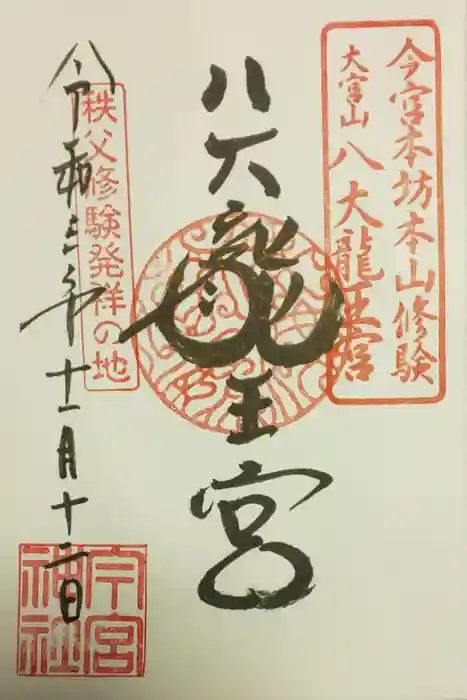 今宮本坊本山修験
大宮山八大龍王宮
八大龍王宮
秩父修験発祥の地
令和三年十一月十二日
今宮
神社